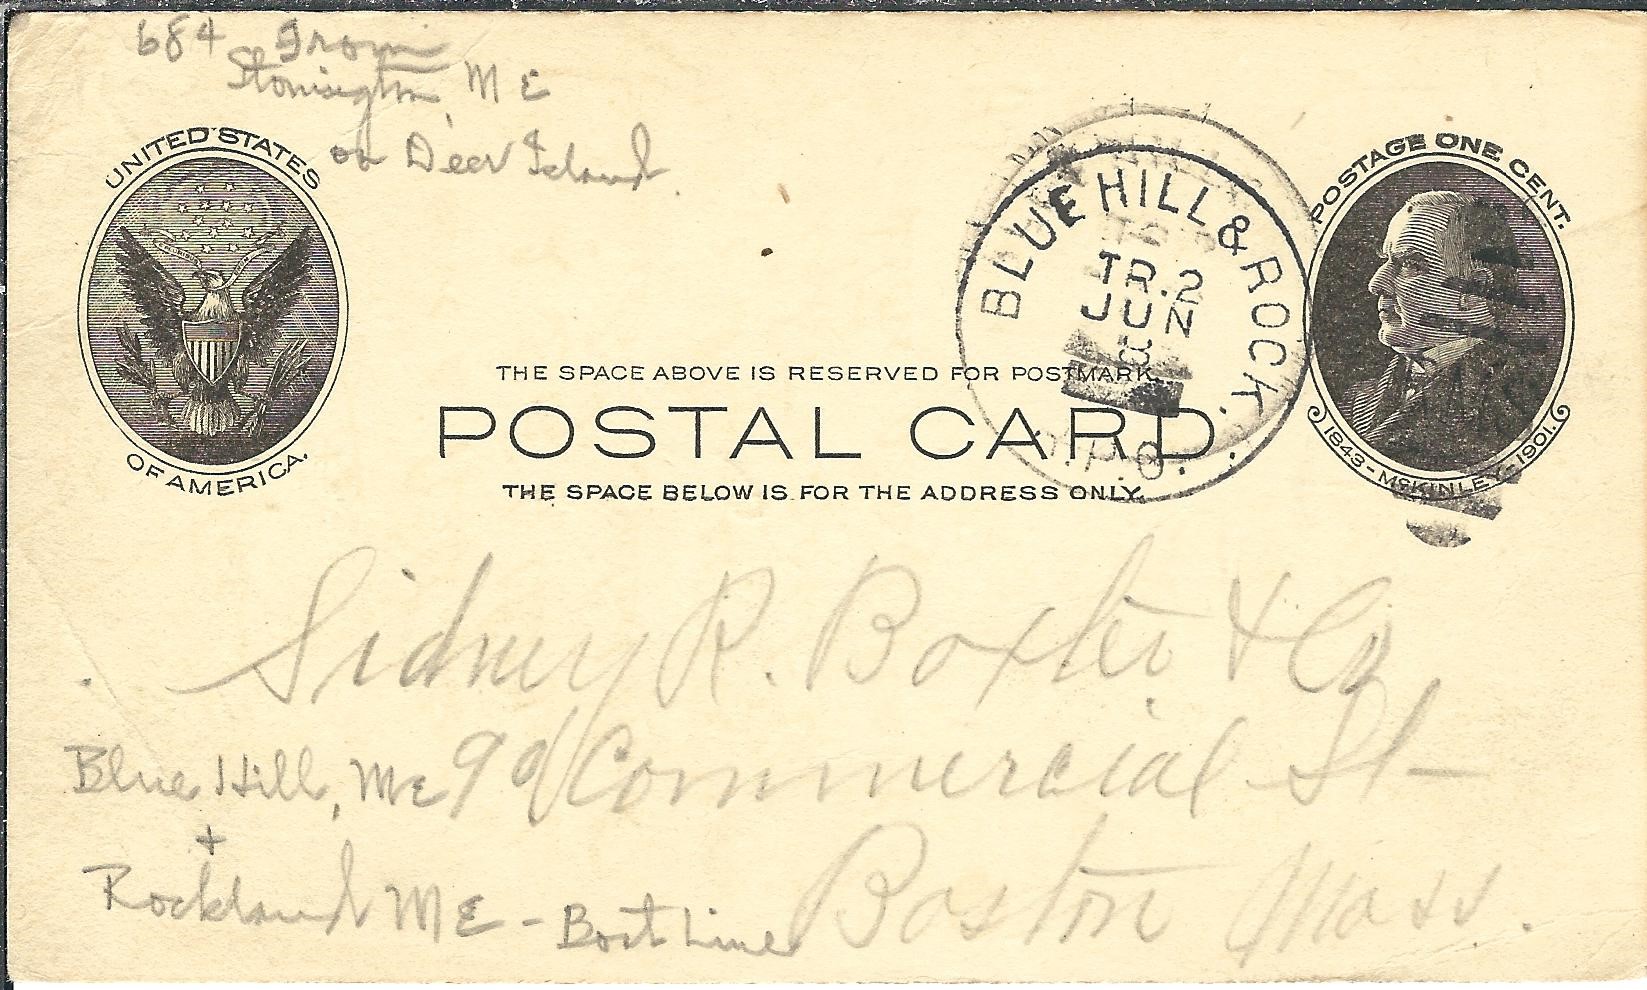 684 From
Stonington, ME
on Deer Island.
UNITED STATES
OF AMERICA.
BLUE HILL & ROCK.
TR. 2
JUN
R.P.O.
POSTAGE ONE CENT.
1843-McKINLEY-1901.
THE SPACE ABOVE IS RESERVED FOR POSTMARK.
POSTAL CARD.
THE SPACE BELOW IS FOR THE ADDRESS ONLY.
Sidney R. Baxter & Co
Commercial St
Boston Mass.
Blue Hill, ME
+
Rockland ME - Boat Line